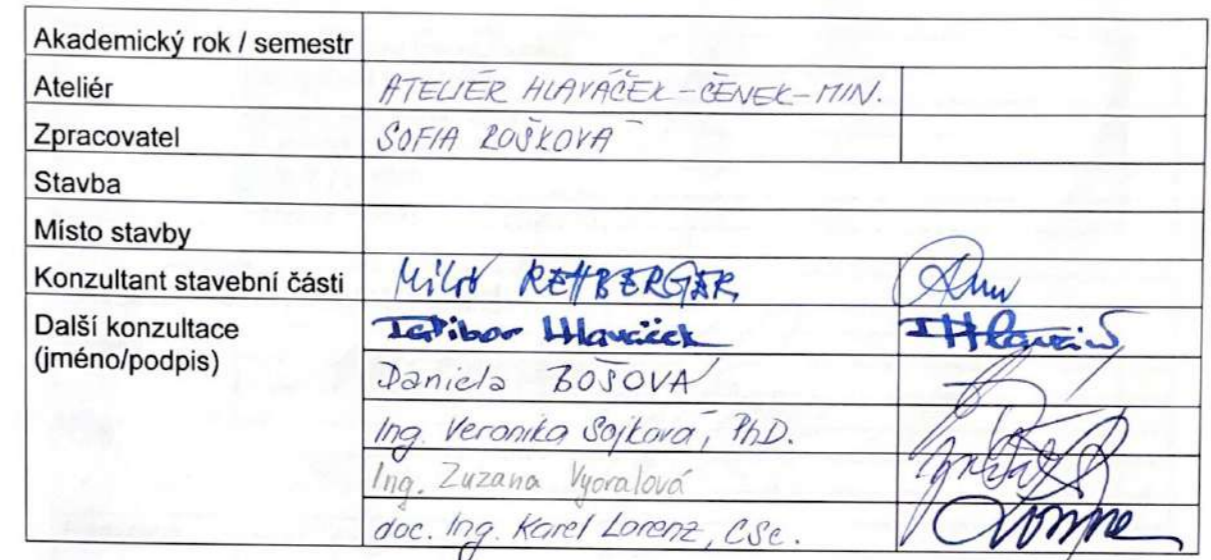 Akademický rok / semestr
Ateliér ATELIÉR HLAVÁČEK-ČENEK-MIN.
Zpracovatel SOFIA ROŠKOVÁ
Stavba
Místo stavby
Konzultant stavební části Miloš REHBERGER
Další konzultace Dalibor Hlaváček
(jméno/podpis)
Daniela BOŠOVÁ
Ing. Veronika Sojková, PhD.
Ing. Zuzana Vyoralová
doc. Ing. Karel Lorenz, CSc.